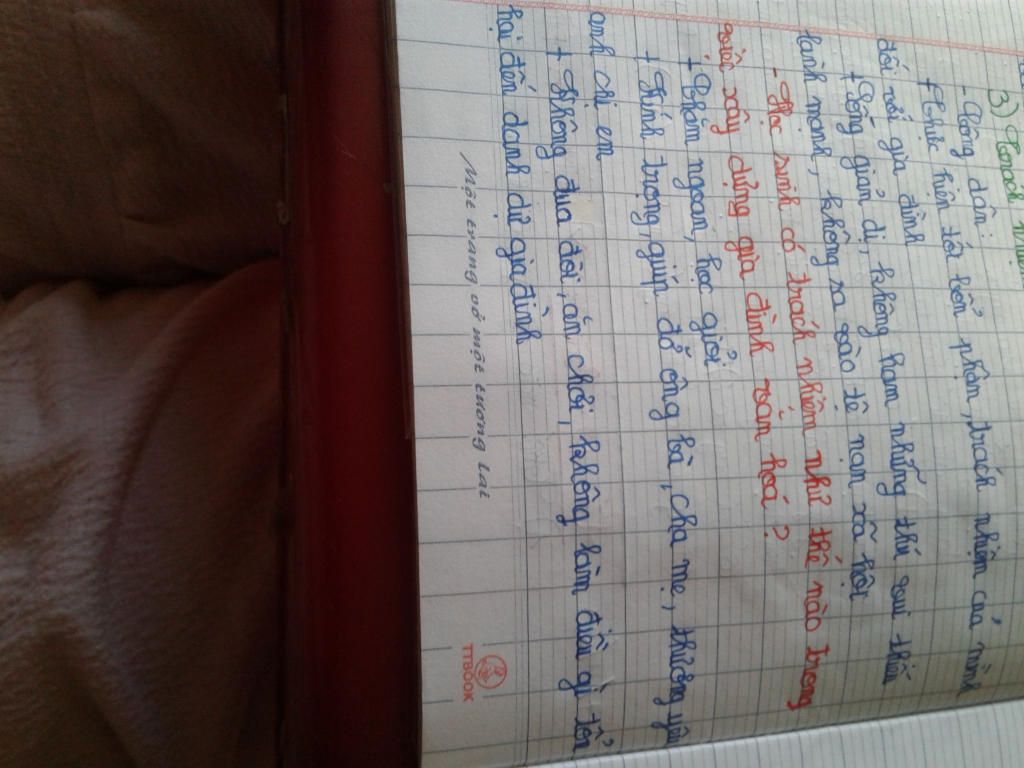 3) Trách nhiệm
- Công dân:
+ Thực hiện tốt bổn phận, trách nhiệm của mình
đối với gia đình
+ Sống giản dị, không ham những thú vui thiếu
lành mạnh, không sa vào tệ nạn xã hội
- Học sinh có trách nhiệm như thế nào trong
việc xây dựng gia đình văn hoá?
+ Chăm ngoan, học giỏi
+ Kính trọng, giúp đỡ ông bà, cha mẹ, thương yêu
anh chị em
+ Không đua đòi, ăn chơi, không làm điều gì tổn
hại đến danh dự gia đình
Một trang vở một tương lai
TTBOOK